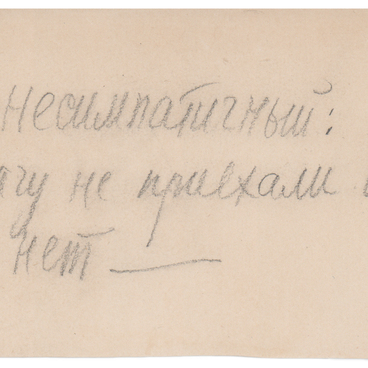 несимпатичный:
чу не приехали
нет —